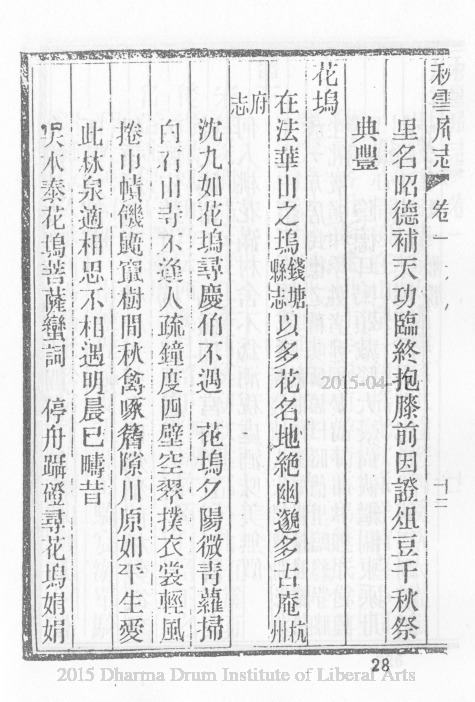 秋雪庵志 卷一 十二
里名昭德補天功臨終抱膝前因證俎豆千秋祭
典豐
花塢
在法華山之塢錢塘縣志以多花名地絶幽邈多古庵杭州
府志
沈九如花塢尋慶伯不遇 花塢夕陽微青蘿掃
白石山寺不逢人疏鐘度四壁空翠撲衣裳輕風
捲巾幘饑鼯竄樹間秋禽啄簷隙川原如平生愛
此林泉適相思不相遇明晨已疇昔
吳本泰花塢菩薩蠻詞 停舟躡磴尋花塢娟娟
2015-04-
28
2015 Dharma Drum Institute of Liberal Arts